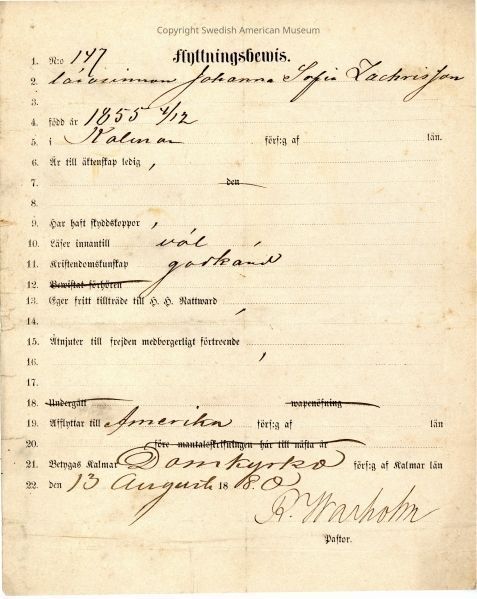 Copyright Swedish American Museum
Flyttningsbewis.
1. N:o 147
2. lärarinnan Johanna Sofia Zachrisson
3.
4. född år 1855 4/12
5. i Kalmar förs:g af län.
6. Är till äktenskap ledig,
7. den
8.
9. Har haft skyddskoppor,
10. Läser innantill väl
11. Kristendomskunskap godkänd
12. Bewistat förhören
13. Eger fritt tillträde till H. H. Nattward
14.
15. Åtnjuter till frejden medborgerligt förtroende
16.
17.
18. Undergått wapenöfning
19. Afflyttar till Amerika förs:g af län
20. före mantalsskrifningen här till nästa år
21. Betygas Kalmar Domkyrko förs:g af Kalmar län
22. den 13 Augusti 1880
R. Warholm
Pastor.